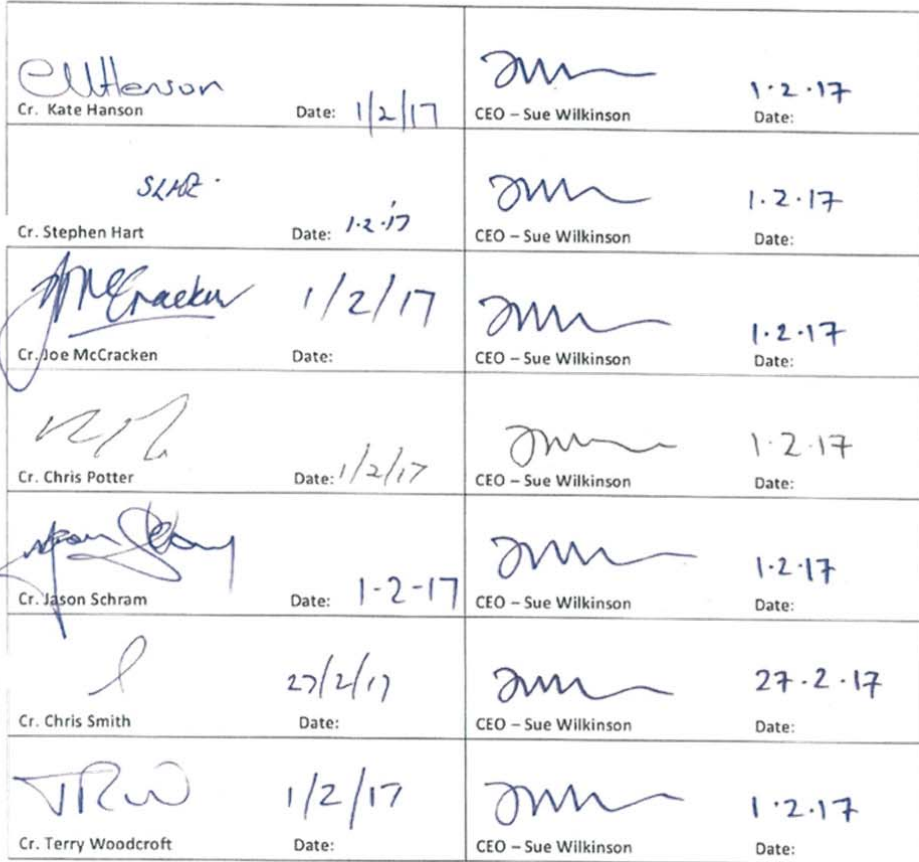 CMHanson 1·2·17
Cr. Kate Hanson Date: 1/2/17 CEO – Sue Wilkinson Date:
1·2·17
Cr. Stephen Hart Date: 1·2·17 CEO – Sue Wilkinson Date:
JMcCracken 1/2/17 1·2·17
Cr. Joe McCracken Date: CEO – Sue Wilkinson Date:
1·2·17
Cr. Chris Potter Date: 1/2/17 CEO – Sue Wilkinson Date:
1·2·17
Cr. Jason Schram Date: 1-2-17 CEO – Sue Wilkinson Date:
27/2/17 27·2·17
Cr. Chris Smith Date: CEO – Sue Wilkinson Date:
TRW 1/2/17 1·2·17
Cr. Terry Woodcroft Date: CEO – Sue Wilkinson Date: